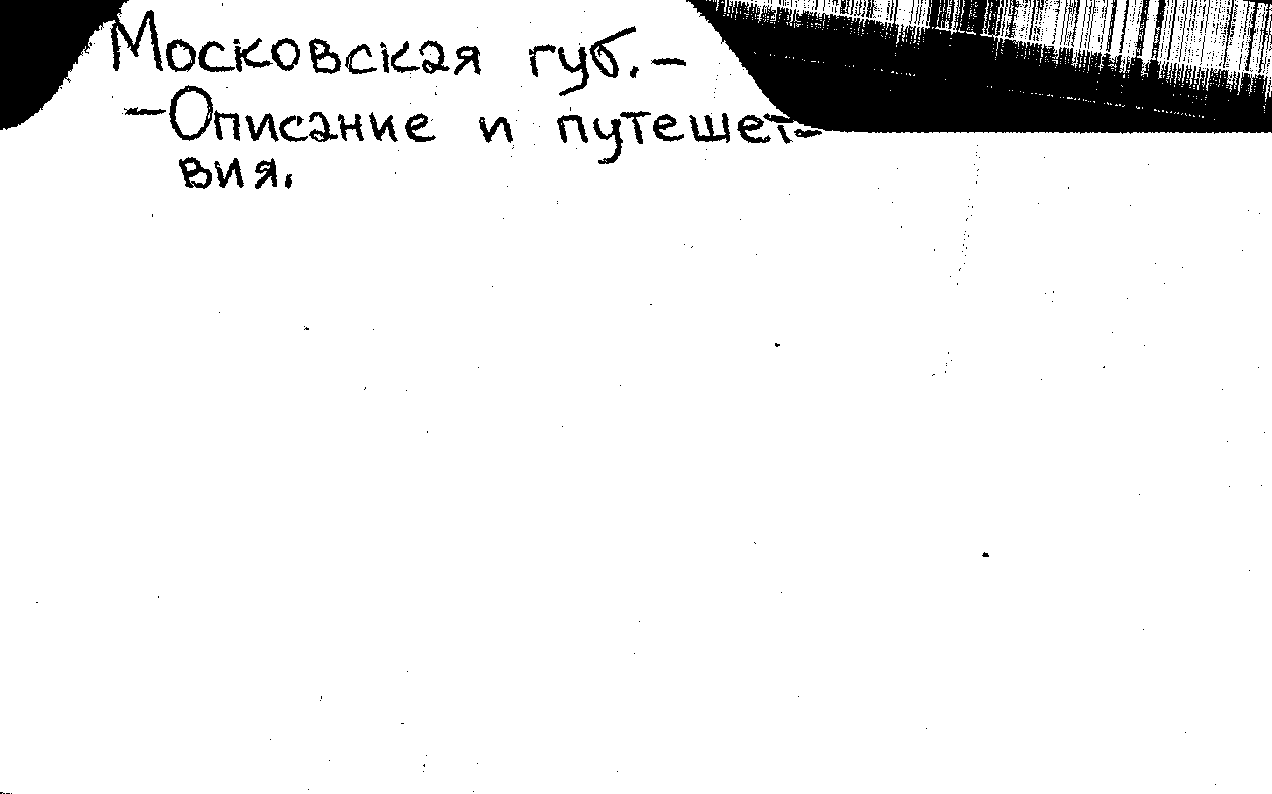 Московская губ.-
-Описание и путешет-
вия.